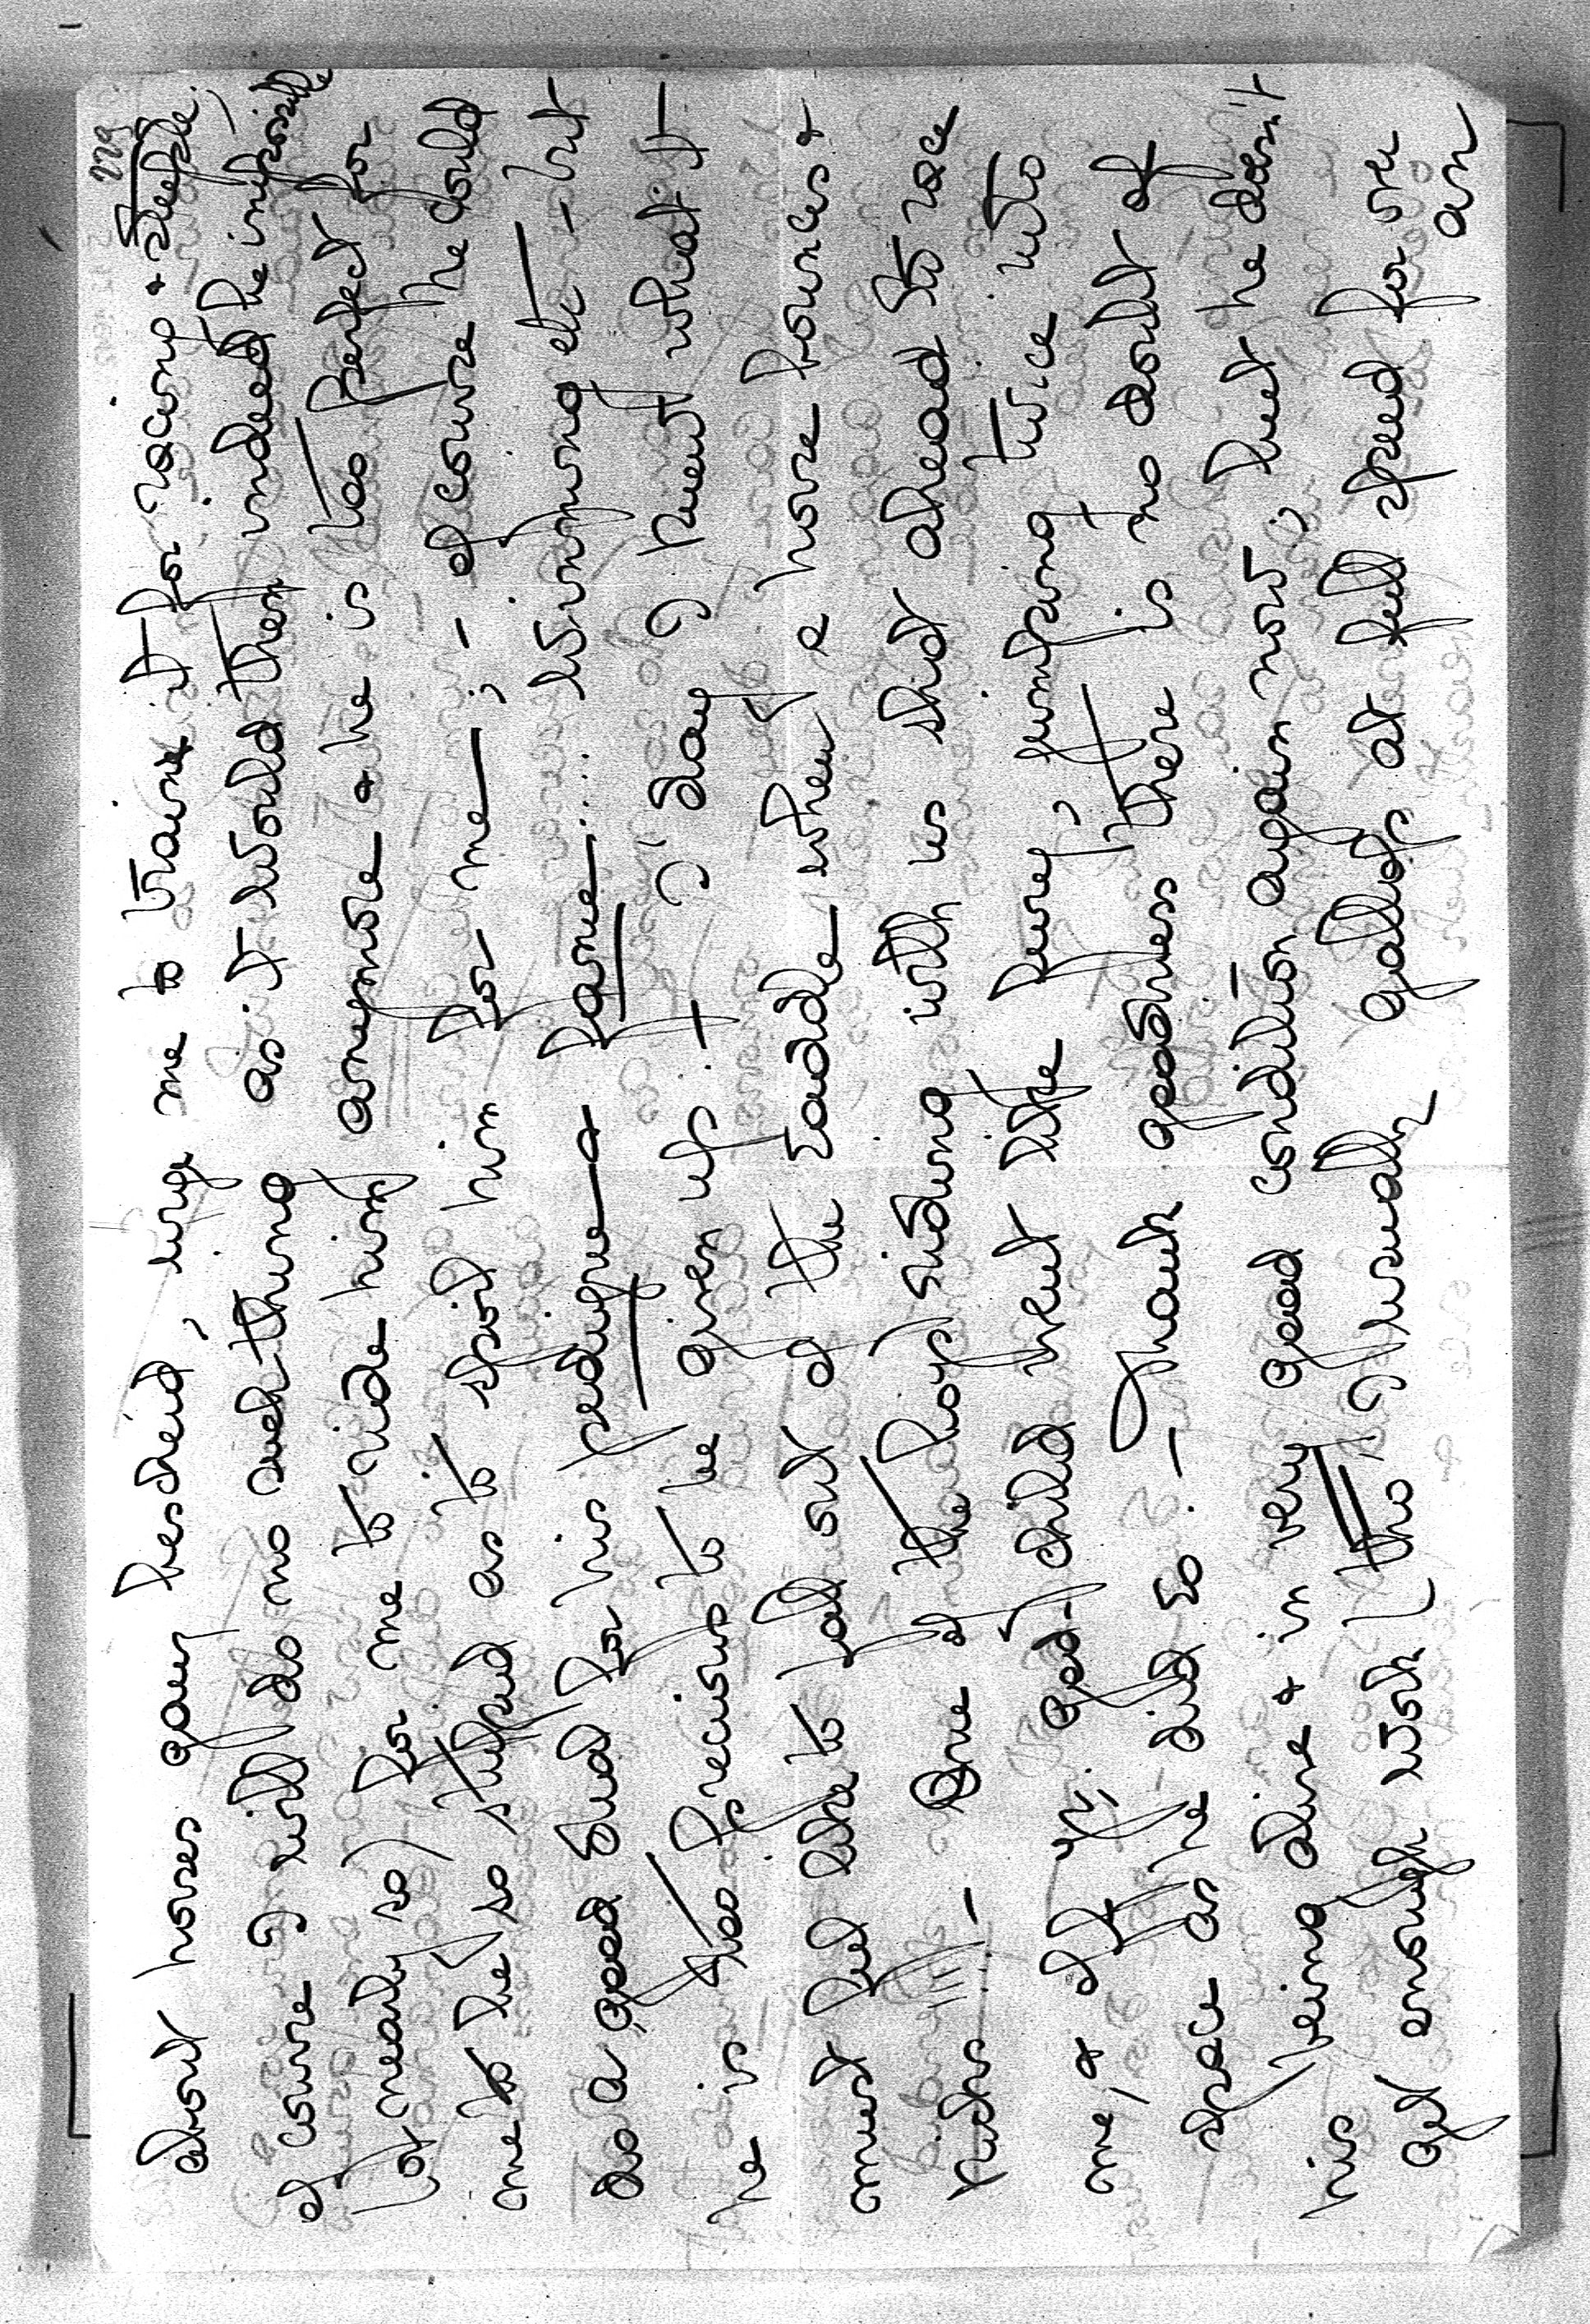 229
about horses gaur besheid, urge me to traine it for racing & steeple.
of course I will do no such thing as it would then indeed be impossible
(or nearly so) for me to ride him anymore & he is too perfect for
me to be so stupid as to spoil him for me —; — of course he could
do a good bud for his pedigree & fame —.... winning etc — but
he is too precious to be given up. — I day I knew what it
must feel like to fall out of the saddle when a horse bounces &
kicks — One of the boys riding with us shot ahead to race
me, & of my god-child went like fury, jumping twice into
space as he did so. — Thank goodness there is no doubt of
his being alive & in very good condition again now; but he don't
get enough work (tho I usually gallop at full speed for over
an